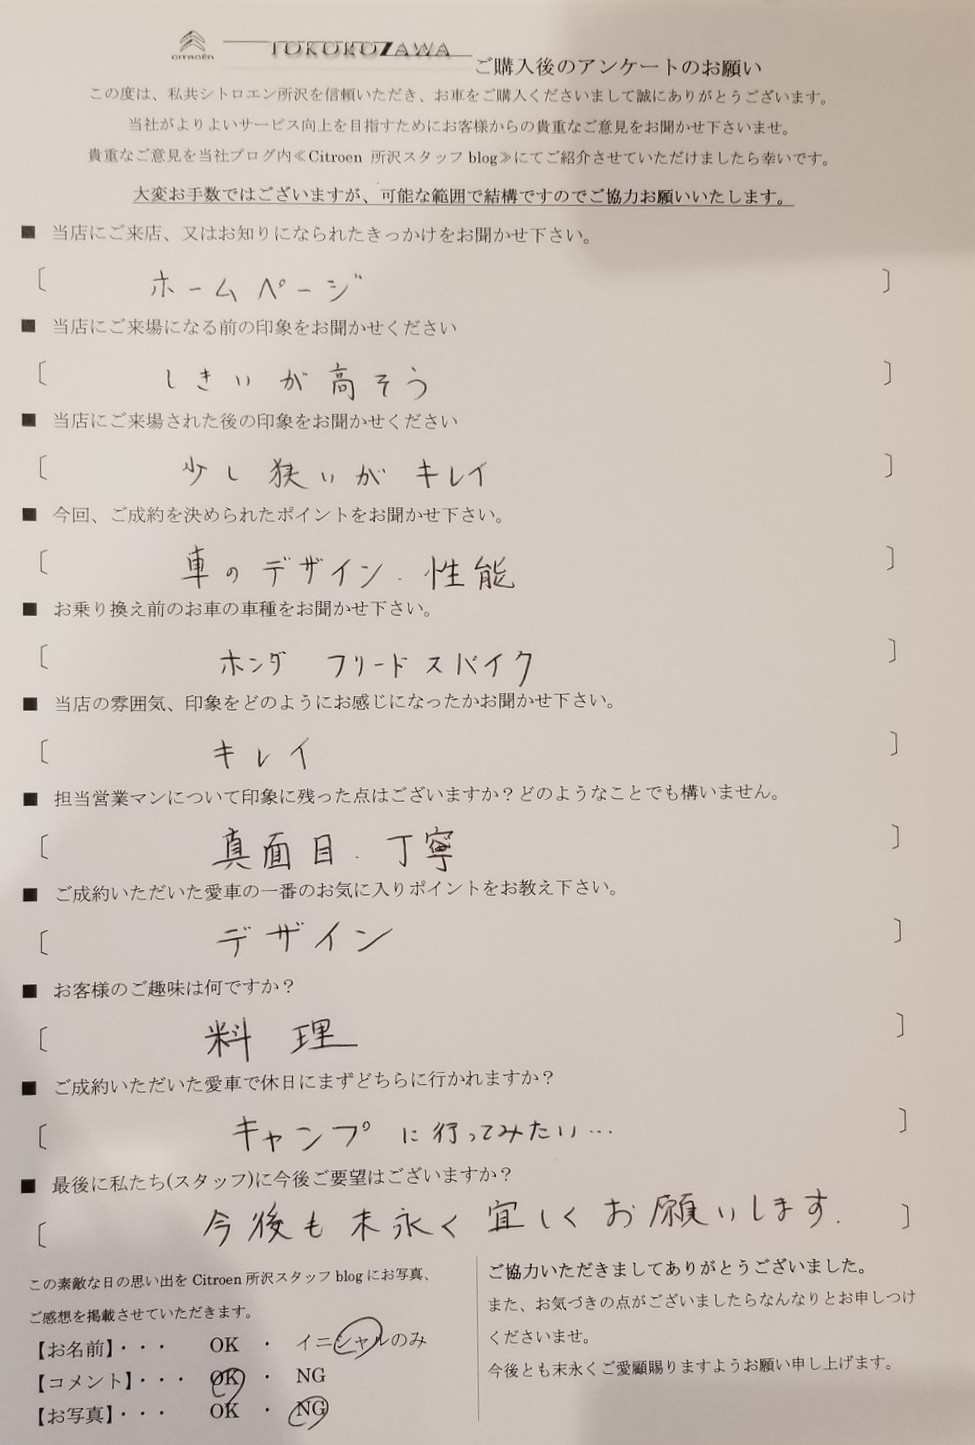 CITROËN TOKOROZAWA ご購入後のアンケートのお願い
この度は、私共シトロエン所沢を信頼いただき、お車をご購入くださいまして誠にありがとうございます。
当社がよりよいサービス向上を目指すためにお客様からの貴重なご意見をお聞かせ下さいませ。
貴重なご意見を当社ブログ内≪Citroen 所沢スタッフ blog≫にてご紹介させていただけましたら幸いです。
大変お手数ではございますが、可能な範囲で結構ですのでご協力お願いいたします。
■ 当店にご来店、又はお知りになられたきっかけをお聞かせ下さい。
〔 ホームページ 〕
■ 当店にご来場になる前の印象をお聞かせください
〔 しきいが高そう 〕
■ 当店にご来場された後の印象をお聞かせください
〔 少し狭いがキレイ 〕
■ 今回、ご成約を決められたポイントをお聞かせ下さい。
〔 車のデザイン.性能 〕
■ お乗り換え前のお車の車種をお聞かせ下さい。
〔 ホンダ フリードスパイク 〕
■ 当店の雰囲気、印象をどのようにお感じになったかお聞かせ下さい。
〔 キレイ 〕
■ 担当営業マンについて印象に残った点はございますか？どのようなことでも構いません。
〔 真面目.丁寧 〕
■ ご成約いただいた愛車の一番のお気に入りポイントをお教え下さい。
〔 デザイン 〕
■ お客様のご趣味は何ですか？
〔 料理 〕
■ ご成約いただいた愛車で休日にまずどちらに行かれますか？
〔 キャンプに行ってみたい… 〕
■ 最後に私たち(スタッフ)に今後ご要望はございますか？
〔 今後も末永く宜しくお願いします. 〕
この素敵な日の思い出を Citroen 所沢スタッフ blog にお写真、
ご感想を掲載させていただきます。
【お名前】・・・ OK ・ イニシャルのみ
【コメント】・・・ OK ・ NG
【お写真】・・・ OK ・ NG
ご協力いただきましてありがとうございました。
また、お気づきの点がございましたらなんなりとお申しつけ
くださいませ。
今後とも末永くご愛顧賜りますようお願い申し上げます。